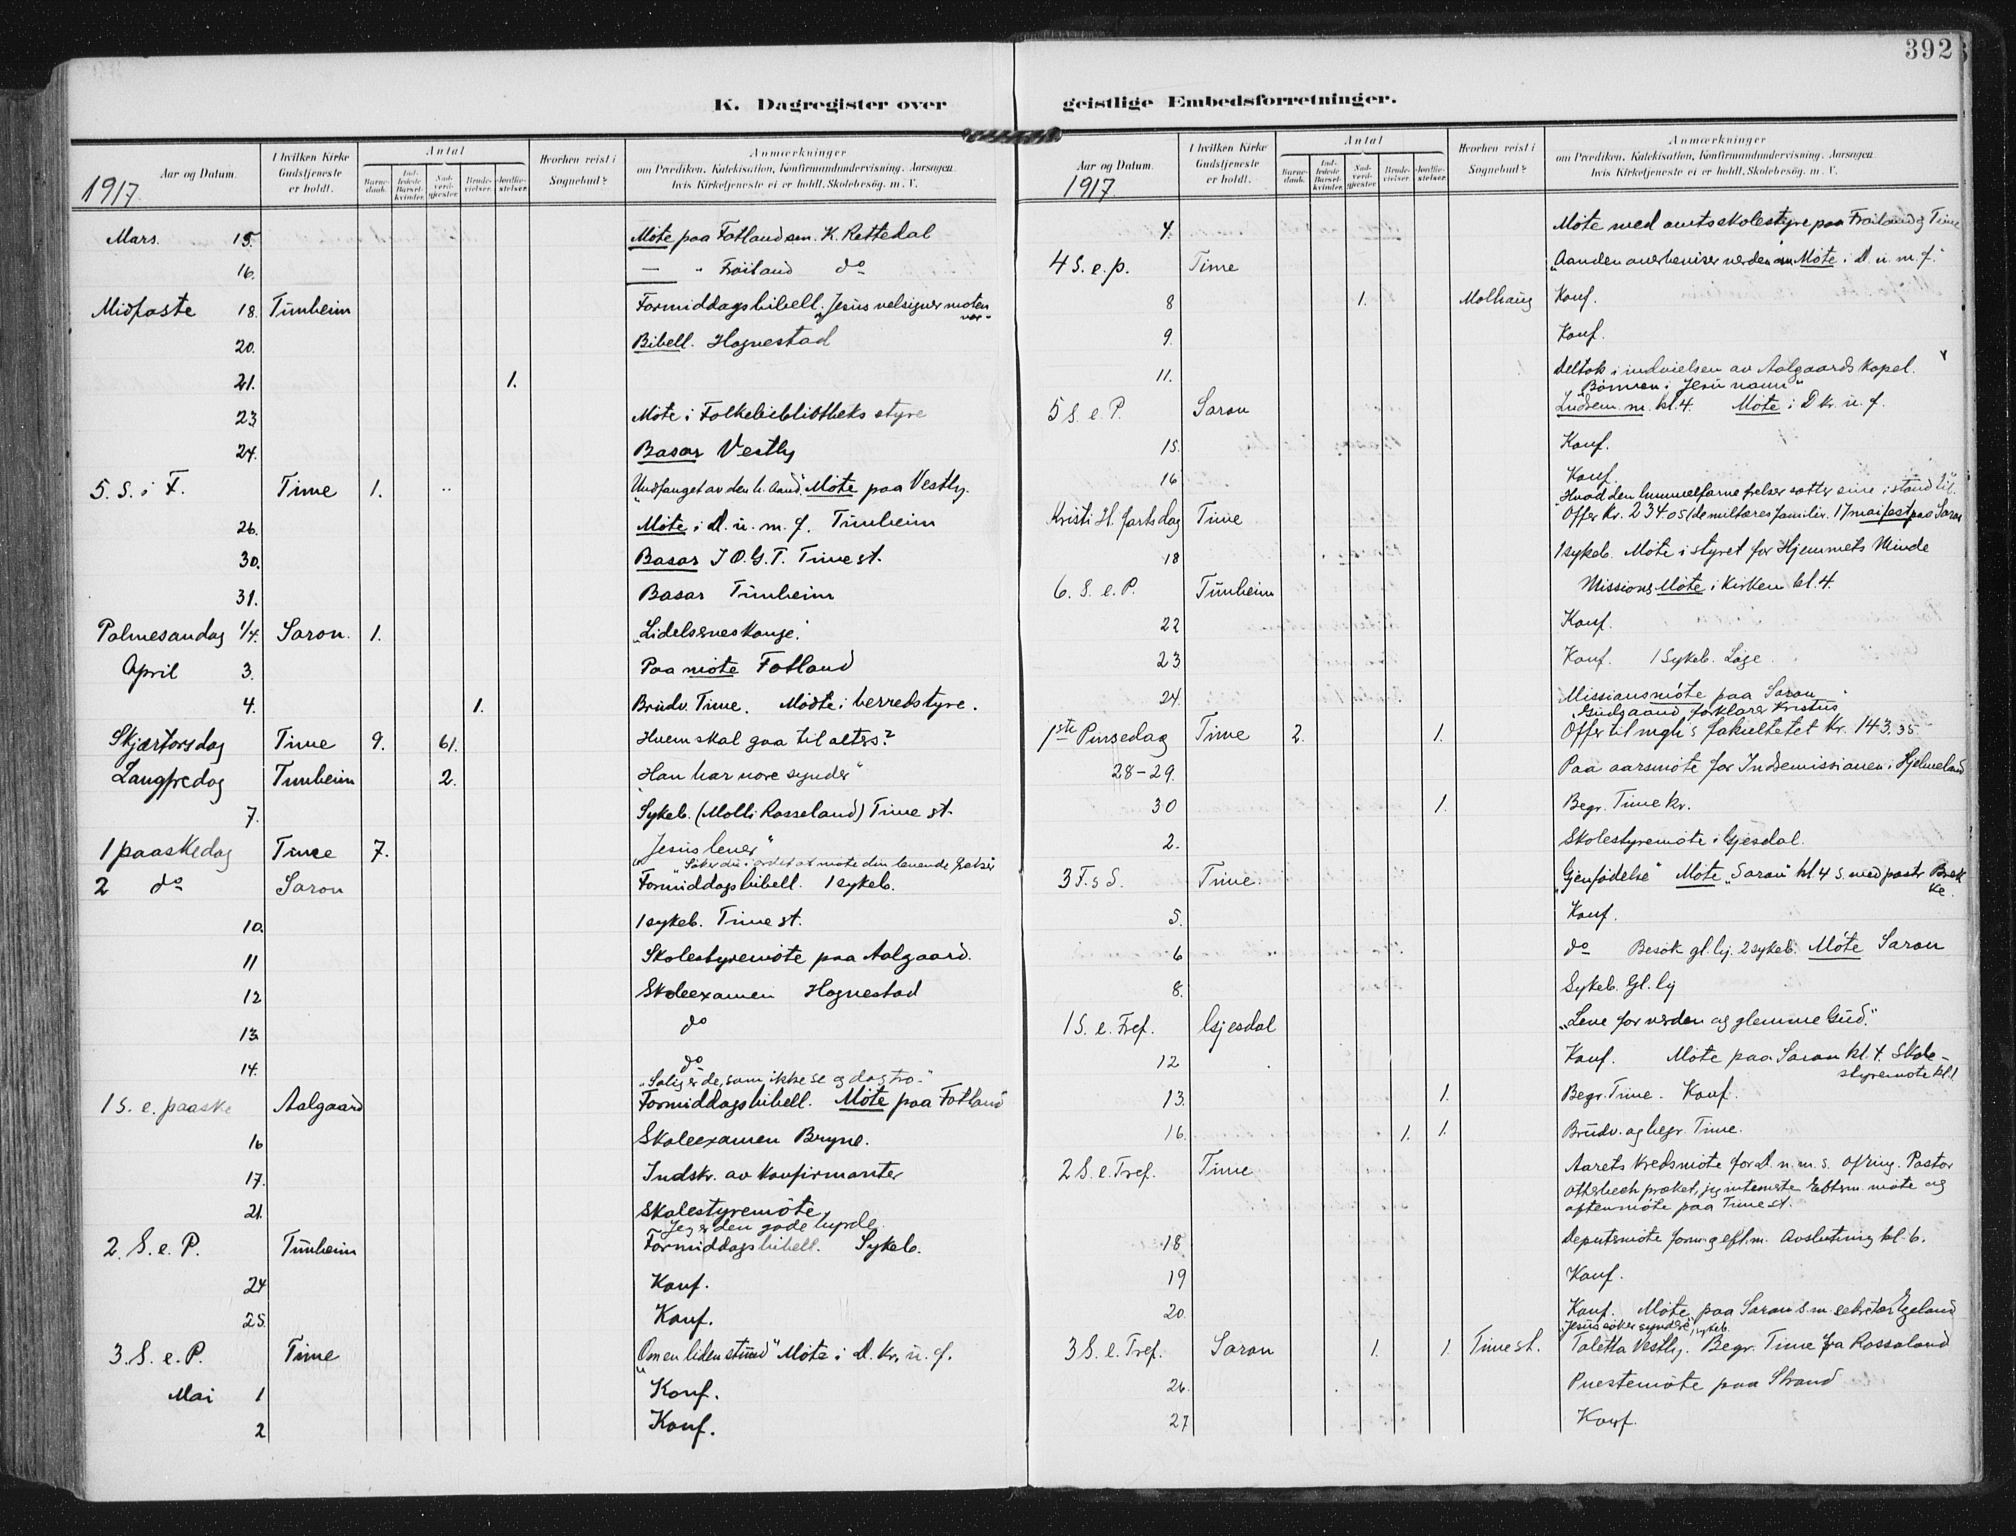 392
K. Dagregister over
Aar og Datum.
I hvilken Kirke Gudstjeneste er holdt.
Antal
Barnedaab.
Indledede Barselkvinder.
Nadverdgjester
Brudevielser.
Jordfæstelser.
Hvorhen reist i Sognebud?
Anmærkninger
om Prædiken, Katekisation, Konfirmandundervisning, Aarsagen
hvis Kirketjeneste ei er holdt, Skolebesøg, m. V.
1917.
Mars. 15. Møte paa Fotland sm. K. Rettedal
16. — " Frøiland do
Midfaste 18. Timheim Formiddagsbibell. "Jesus velsigner
20. Bibell. Hognestad
21. 1.
23 Møte i Folkebibliotheks styre
24. Basar Vestly
5. S. i F. Time 1. "Undfanget av den h. Aand. Møte paa Vestly.
26. Møte i D. u. m. f. Timheim
30. Basar I. O. G. T. Time st.
31. Basar Timheim
Palmesøndag 1/4. Saron. 1. "Lidelsernes konge".
April 3. Paa møte Fotland
4. 1. Brudv. Time. Mødte i herredstyre.
Skjærtorsdag Time 9. 61. Hvem skal gaa til alters?
Langfredag Timheim 2. "Han bar vore synder"
7. Sykeb. (Molli Rosseland) Time st.
1 paaskedag Time 7. "Jesus lever"
"Søker du i ordet at møte din levende frelser
2 do Saron Formiddagsbibell. 1 sykeb.
10. 1 sykeb. Time st.
11 Skolestyremøte paa Aalgaard.
12 Skoleexamen Hognestad
13. do
14. do
"Salig er de, som ikke se og dog tro."
1 S. e. paaske Aalgaard Formiddagsbibell. Møte paa Fotland
16 Skoleexamen Bryne.
17. Indskr. av konfirmanter
21. Skolestyremøte,
Jeg er den gode hyrde.
2. S. e. P. Timheim Formiddagsbibell. Sykeb.
24 Konf.
25. Konf.
3. S. e. P. Time "Om en liden stund" Møte i D. kr. u. f.
Mai 1 Konf.
2 Konf.
geistlige Embedsforretninger.
Aar og Datum.
I hvilken Kirke Gudstjeneste er holdt.
Antal
Barnedaab.
Indledede Barselkvinder.
Nadverdgjester
Brudevielser.
Jordfæstelser.
Hvorhen reist i Sognebud?
Anmærkninger
om Prædiken, Katekisation, Konfirmandundervisning, Aarsagen
hvis Kirketjeneste ei er holdt, Skolebesøg m. V.
1917.
4. Møte med amtsskolestyre paa Frøiland og Time
4 S. e. p. Time "Aanden overbeviser verden" Møte i D. u. m. f.
8 1. Molhaug Konf.
9. Konf.
11. Deltok i indvielsen av Aalgaards kapel.
"Bønnen i Jesu navn"
5 S. e. P. Saron Indsem. m. kl. 4. Møte i D kr. u. f.
15. Konf.
16 Konf.
Hvad den himmelfarne frelser sætter sine i stand til.
Kristi H. fartsdag Time Offer Kr. 234.05 (de militæres familier. 17 maifest paa Saron
18 1 sykeb. Møte i styret for Hjemmets Minde
6. S. e. P. Timheim Missions Møte i Kirken kl. 4.
22 Konf.
23 Konf. 1 Sykeb. Løge.
24. Missionsmøte paa Saron
Guds aand forklarer Kristus
1ste Pinsedag Time 2. 1. Offer til mgh's fakultetet Kr. 143.35
28-29. Paa aarsmøte for Indremissionen i Hjelmeland
30 1. Begr. Time kr.
2. Skolestyremøte i Gjesdal.
3 F. s S. Time. "Gjenfødelse" Møte "Saron" kl 4 s. med pastr Brekke.
5. Konf.
6 do Besøk gl. hj. 2 sykeb. Møte Saron
8. Sykeb. Gl. hj
1 S. e. Tref. Gjesdal "Leve for verden og glemme Gud."
12 Konf. Møte paa Saron kl. 4. Skolestyremøte kl. 1
13. 1. Begr. Time. Konf.
16. 1. 1. Brudv. og begr. Time.
2 S. e. Tref. Time Aarets kredsmøte for D. n. m. s. Ofring. Pastor
Otterbech præket, jeg Eftrm. møte og
aftenmøte paa Time st.
18 Deputsmøte form. og eft. m. Avslutning kl. 6.
19 Konf.
20. Konf. Møte paa Saron s. m. sekretær Egeland
"Jesus søker syndere" 1 sykeb.
3 S. e. Tref. Saron 1. 1. Time st. Taletta Vestly. Begr. Time fra Rossaland
26. Prestemøte paa Strand
27 Konf.